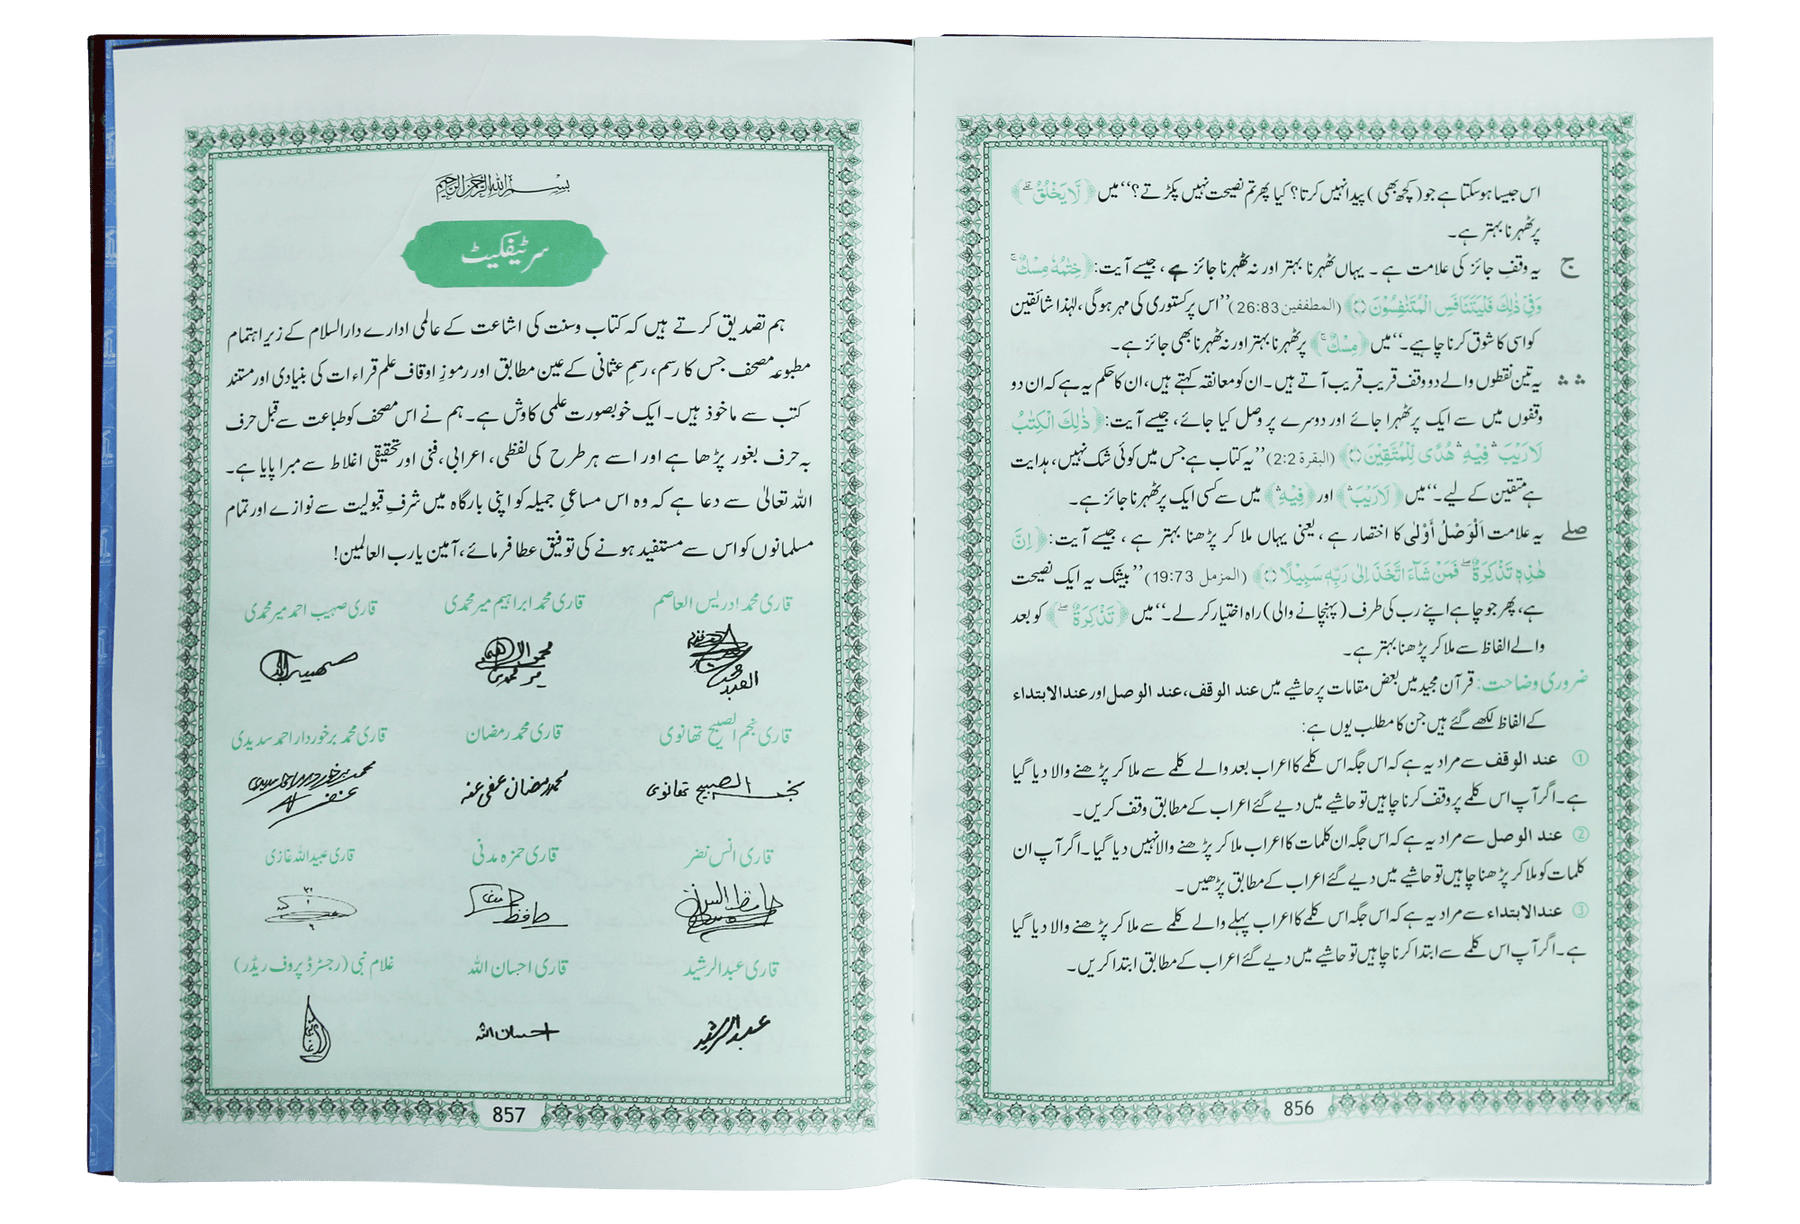 اس جیسا ہوسکتا ہے جو (کچھ بھی) پیدا نہیں کرتا؟ کیا پھر تم نصیحت نہیں پکڑتے؟‘‘ میں ﴿لَّا يَخْلُقُ ۗ﴾
پر ٹھہرنا بہتر ہے۔
ج یہ وقفِ جائز کی علامت ہے ۔ یہاں ٹھہرنا بہتر اور نہ ٹھہرنا جائز ہے ، جیسے آیت: ﴿خِتٰمُهٗ مِسْكٌ ۚ
وَفِيْ ذٰلِكَ فَلْيَتَنَافَسِ الْمُتَنٰفِسُوْنَ ○﴾ (المطففین 26:83) ’’اس پر کستوری کی مہر ہوگی، لہٰذا شائقین
کو اسی کا شوق کرنا چاہیے۔‘‘ میں ﴿مِسْكٌ ۚ﴾ پر ٹھہرنا بہتر اور نہ ٹھہرنا بھی جائز ہے۔
؞ ؞ یہ تین نقطوں والے دو وقف قریب قریب آتے ہیں ۔ ان کو معانقہ کہتے ہیں، ان کا حکم یہ ہے کہ ان دو
وقفوں میں سے ایک پر ٹھہرا جائے اور دوسرے پر وصل کیا جائے، جیسے آیت: ﴿ذٰلِكَ الْكِتٰبُ
لَا رَيْبَ ۛ فِيْهِ ۛ هُدًى لِّلْمُتَّقِيْنَ ○﴾ (البقرة 2:2) ’’یہ کتاب ہے جس میں کوئی شک نہیں، ہدایت
ہے متقین کے لیے۔‘‘ میں ﴿لَا رَيْبَ ۛ﴾ اور ﴿فِيْهِ ۛ﴾ میں سے کسی ایک پر ٹھہرنا جائز ہے۔
صلے یہ علامت اَلْوَصْلُ أَوْلٰی کا اختصار ہے ، یعنی یہاں ملا کر پڑھنا بہتر ہے ، جیسے آیت: ﴿اِنَّ
هٰذِهٖ تَذْكِرَةٌ ۖ فَمَنْ شَآءَ اتَّخَذَ اِلٰى رَبِّهٖ سَبِيْلًا ○﴾ (المزمل 19:73) ’’بیشک یہ ایک نصیحت
ہے، پھر جو چاہے اپنے رب کی طرف (پہنچانے والی) راہ اختیار کر لے۔‘‘ میں ﴿تَذْكِرَةٌ ۖ﴾ کو بعد
والے الفاظ سے ملا کر پڑھنا بہتر ہے۔
ضروری وضاحت: قرآن مجید میں بعض مقامات پر حاشیے میں عند الوقف، عند الوصل اور عندالابتداء
کے الفاظ لکھے گئے ہیں جن کا مطلب یوں ہے:
① عند الوقف سے مراد یہ ہے کہ اس جگہ اس کلمے کا اعراب بعد والے کلمے سے ملا کر پڑھنے والا دیا گیا
ہے۔ اگر آپ اس کلمے پر وقف کرنا چاہیں تو حاشیے میں دیے گئے اعراب کے مطابق وقف کریں۔
② عند الوصل سے مراد یہ ہے کہ اس جگہ ان کلمات کا اعراب ملا کر پڑھنے والا نہیں دیا گیا۔ اگر آپ ان
کلمات کو ملا کر پڑھنا چاہیں تو حاشیے میں دیے گئے اعراب کے مطابق پڑھیں۔
③ عندالابتداء سے مراد یہ ہے کہ اس جگہ اس کلمے کا اعراب پہلے والے کلمے سے ملا کر پڑھنے والا دیا گیا
ہے۔ اگر آپ اس کلمے سے ابتدا کرنا چاہیں تو حاشیے میں دیے گئے اعراب کے مطابق ابتدا کریں۔
856
بسم الله الرحمن الرحيم
سرٹیفکیٹ
ہم تصدیق کرتے ہیں کہ کتاب و سنت کی اشاعت کے عالمی ادارے دارالسلام کے زیر اہتمام
مطبوعہ مصحف جس کا رسم، رسمِ عثمانی کے عین مطابق اور رموزِ اوقاف علم قراءات کی بنیادی اور مستند
کتب سے ماخوذ ہیں۔ ایک خوبصورت علمی کاوش ہے۔ ہم نے اس مصحف کو طباعت سے قبل حرف
بہ حرف بغور پڑھا ہے اور اسے ہر طرح کی لفظی، اعرابی، فنی اور تحقیقی اغلاط سے مبرا پایا ہے۔
اللہ تعالیٰ سے دعا ہے کہ وہ اس مساعیِ جمیلہ کو اپنی بارگاہ میں شرفِ قبولیت سے نوازے اور تمام
مسلمانوں کو اس سے مستفید ہونے کی توفیق عطا فرمائے، آمین یا رب العالمین!
قاری محمد ادریس العاصم قاری محمد ابراہیم میر محمدی قاری صہیب احمد میر محمدی
صهيب
قاری نجم الصبیح تھانوی قاری محمد رمضان قاری محمد برخوردار احمد سدیدی
نجم الصبیح تھانوی محمد رمضان عفی عنہ محمد برخوردار احمد سدیدی
قاری انس نضر قاری حمزہ مدنی قاری عبید اللہ غازی
حافظ
قاری عبدالرشید قاری احسان اللہ غلام نبی (رجسٹرڈ پروف ریڈر)
عبدالرشید احسان اللہ
857